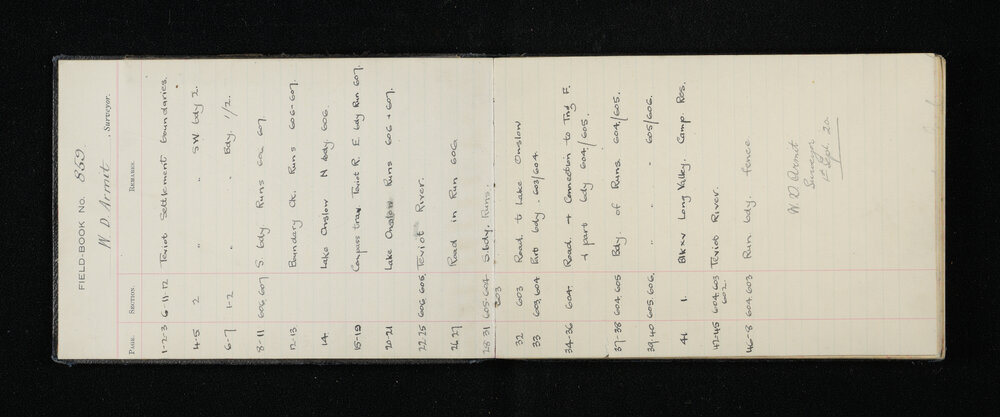 FIELD-BOOK No. 859
W. D. Armit, Surveyor.
PAGE. SECTION. REMARKS.
1-2-3 6-11-12 Teviot Settlement boundaries.
4-5 2 " SW bdy 2.
6-7 1-2 " Bdy. 1/2.
8-11 606, 607 S bdy Runs 606 607
12-13 Boundary Ck. Runs 606-607.
14 Lake Onslow N bdy 606.
15-19 Compass trav. Teviot R. E bdy Run 607.
20-21 Lake Onslow Runs 606 + 607.
22-25 606, 605, Teviot River.
26 27 Road in Run 606.
28-31 605-604 S. bdy. Runs.
603
32 603 Road to Lake Onslow
33 603, 604 Part bdy. 603/604
34-36 604. Road + Connection to Trig F.
+ part bdy 604/605.
37-38 604, 605 Bdy of Runs 604/605.
39-40 605, 606. " " " 605/606.
41 1. Blk XV Long Valley. Camp Res.
42-45 604, 603 Teviot River.
602.
46-8 604, 603 Run bdy. fence
W D Armit
Surveyor
Sept. 20